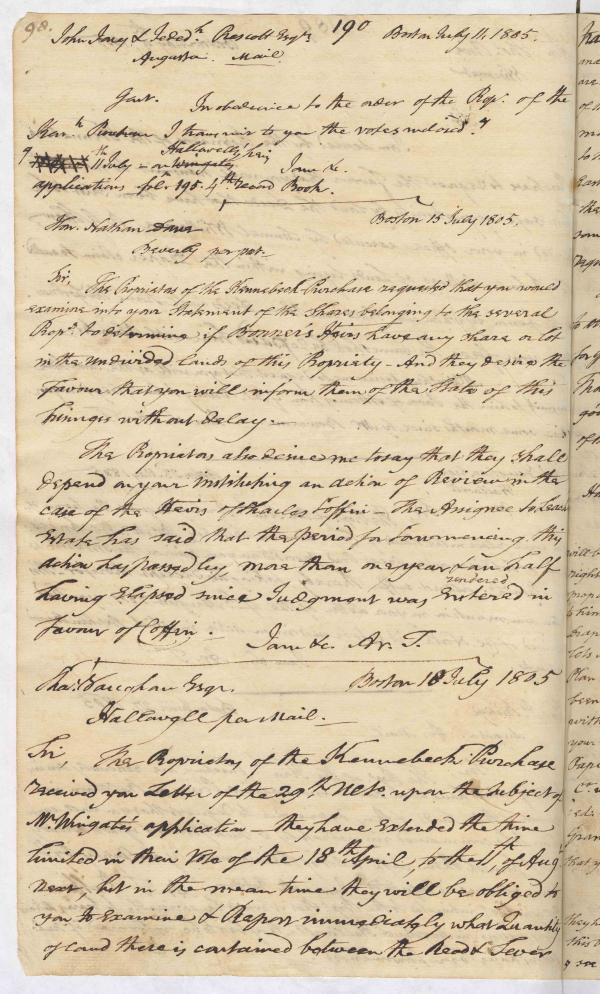 98.
190
John Joney & Jeded.h Prescott Esq.rs Boston July 11. 1805.
Augusta. Mail
Gent. In obedience to the order of the Prop.s of the
Kenn.k Purchase I transmit to you the votes inclosed.
11.th July - on Wingates Hallowell's heirs
I am &c.
applications fol.o 195. 4.th record Book.
Hon. Nathan Dane Boston 15 July 1805.
Beverly per post.
Sir, The Proprietors of the Kennebeck Purchase requested that you would
examine into your Statement of the Shares belonging to the several
Prop.rs to determine if Bonner's Heirs have any share or lot
in the undivided lands of this Propriety - And they desire the
favour that you will inform them of the State of this
business without delay.
The Proprietors also desire me to say that they shall
depend on your instituting an action of Review in the
case of the Heirs of Charles Coffin - The Assignee to
Estate has said that the period for Commencing this
action has passed by, more than one year & an half
having Elapsed since Judgment was rendered Entered in
favour of Coffin.
I am &c. Ar. T.
Cha.s Vaughan Esqr. Boston 18 July 1805
Hallowell per Mail.
Sir, The Proprietors of the Kennebeck Purchase
received your Letter of the 29.th Ulto. upon the Subject of
Mr. Wingate's application - they have Extended the time
limited in their Vote of the 18.th April, to the 1.st of Aug
next, but in the mean time they will be obliged to
you to Examine & Report immediately what Quantity
of land there is contained between the Road &